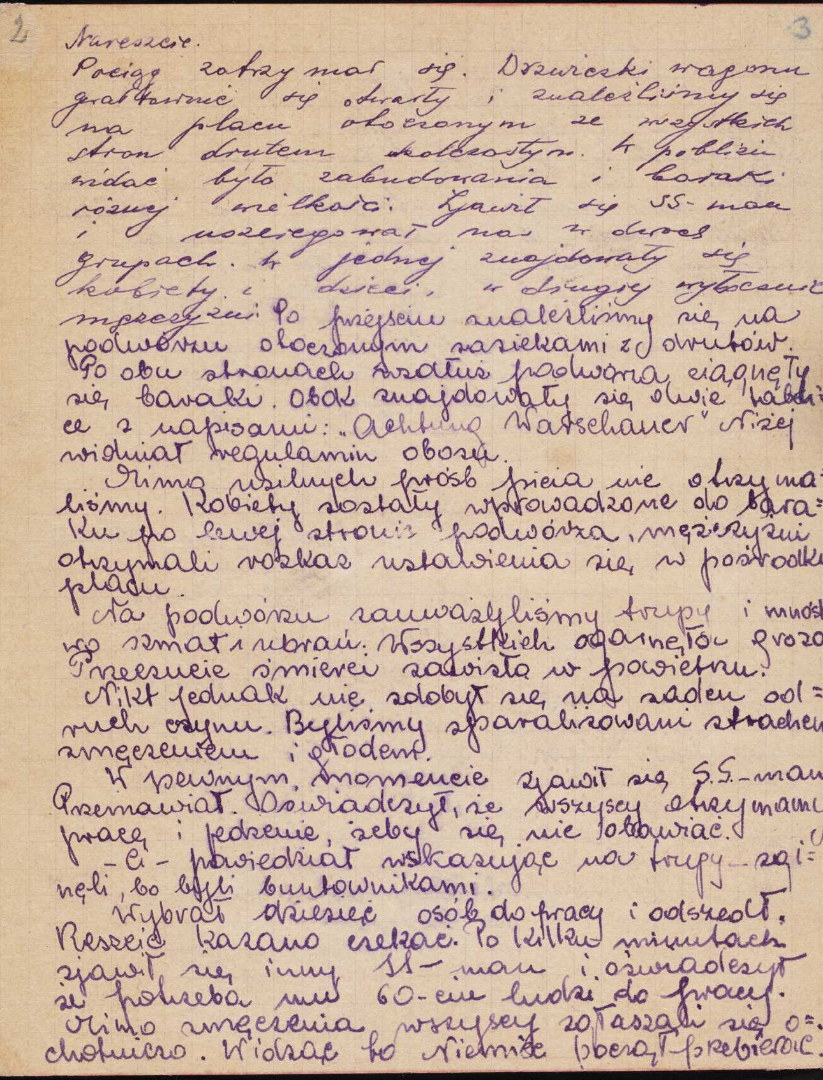 2 3
Nareszcie.
Pociąg zatrzymał się. Drzwiczki wagonu
gwałtownie się otwarły i znaleźliśmy się
na placu otoczonym ze wszystkich
stron drutem kolczastym. W pobliżu
widać było zabudowania i baraki
różnej wielkości. Zjawił się SS-man
i uszeregował nas w dwóch
grupach. W jednej znajdowały się
kobiety i dzieci, w drugiej wyłącznie
mężczyźni. Po przejściu znaleźliśmy się na
podwórzu otoczonym zasiekami z drutów.
Po obu stronach wzdłuż podwórza ciągnęły
się baraki. Obok znajdowały się dwie tabli-
ce z napisami: „Achtung Warschauer" Niżej
widniał regulamin obozu.
Mimo usilnych próśb picia nie otrzyma-
liśmy. Kobiety zostały wprowadzone do bara=
ku po lewej stronie podwórza, mężczyźni
otrzymali rozkaz ustawienia się w pośrodku
placu.
Na podwórzu zauważyliśmy trupy i mnóst
wo szmat i ubrań. Wszystkich ogarnęła groza
Przeczucie śmierci zawisło w powietrzu.
Nikt jednak nie zdobył się na żaden od=
ruch czynu. Byliśmy sparaliżowani strachem
zmęczeniem i głodem.
W pewnym momencie zjawił się S.S.-man
Przemawiał. Oświadczył, że wszyscy otrzymamy
pracę i jedzenie, żeby się nie obawiać.
– Ci – powiedział wskazując na trupy – zgi=
nęli, bo byli buntownikami.
Wybrał dziesięć osób do pracy i odszedł.
Reszcie kazano czekać. Po kilku minutach
zjawił się inny SS-man i oświadczył
że potrzeba mu 60-ciu ludzi do pracy.
Mimo zmęczenia wszyscy zgłaszali się o=
chotniczo. Widząc to Niemiec począł przebierać.